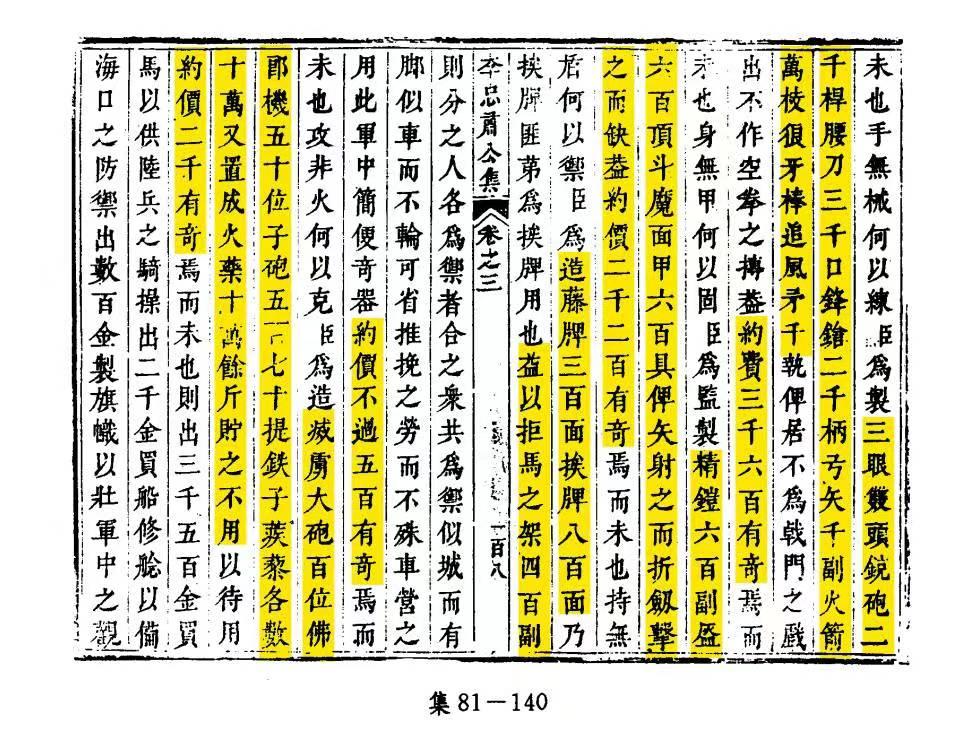 未也手無械何以練臣爲製三眼雙頭銃砲二
千桿腰刀三千口鋒鎗二千柄弓矢千副火箭
萬枝狼牙棒追風矛千執俾居不爲戟門之戲
出不作空拳之搏葢約費三千六百有奇焉而
未也身無甲何以固臣爲監製精鎧六百副盔
六百頂斗魔面甲六百具俾矢射之而折劔擊
之而缺葢約價二千二百有奇焉而未也持無
盾何以禦臣爲造藤牌三百面挨牌八百面乃
挨牌匪第爲挨牌用也益以拒馬之架四百副
李忠肅公集 卷之三 一百八
則分之人各爲禦者合之衆共爲禦似城而有
脚似車而不輪可省推挽之勞而不殊車營之
用此軍中簡便奇器約價不過五百有奇焉而
未也攻非火何以克臣爲造滅虜大砲百位佛
郎機五十位子砲五百七十提鉄子蒺藜各數
十萬又置成火藥十萬餘斤貯之不用以待用
約價二千有奇焉而未也則出三千五百金買
馬以供陸兵之騎操出二千金買船修舩以備
海口之防禦出數百金製旗幟以壯軍中之觀
集81－140